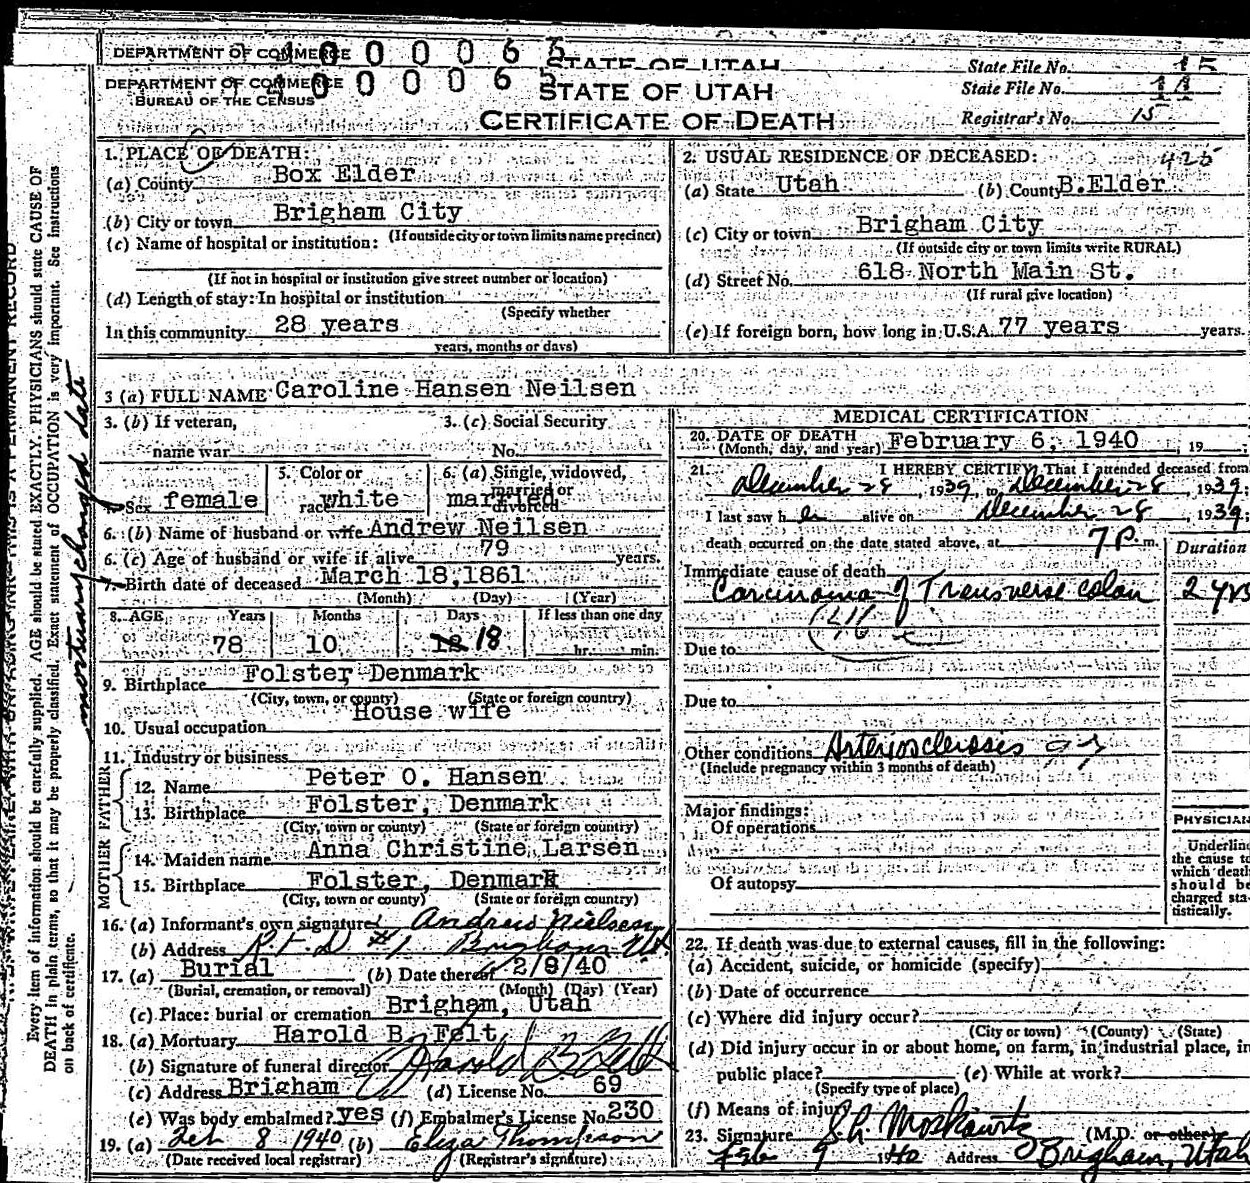 DEPARTMENT OF COMMERCE 1000066 STATE OF UTAH State File No. 15
DEPARTMENT OF COMMERCE 1000065 STATE OF UTAH State File No. 11
BUREAU OF THE CENSUS
CERTIFICATE OF DEATH Registrar's No. 15
1. PLACE OF DEATH:
(a) County Box Elder
(b) City or town Brigham City
(If outside city or town limits name precinct)
(c) Name of hospital or institution:
(If not in hospital or institution give street number or location)
(d) Length of stay: In hospital or institution
(Specify whether
In this community 28 years
years, months or days)
2. USUAL RESIDENCE OF DECEASED: 425
(a) State Utah (b) County B.Elder
(c) City or town Brigham City
(If outside city or town limits write RURAL)
(d) Street No. 618 North Main St.
(If rural give location)
(e) If foreign born, how long in U.S.A. 77 years years.
3 (a) FULL NAME Caroline Hansen Neilsen
3. (b) If veteran, 3. (c) Social Security
name war No.
5. Color or 6. (a) Single, widowed,
married or
Sex female race white married divorced
6. (b) Name of husband or wife Andrew Neilsen
6. (c) Age of husband or wife if alive 79 years.
7. Birth date of deceased March 18,1861
(Month) (Day) (Year)
8. AGE Years Months Days If less than one day
78 10 18 hr. min.
9. Birthplace Folster Denmark
(City, town, or county) (State or foreign country)
10. Usual occupation House wife
11. Industry or business
FATHER
12. Name Peter O. Hansen
13. Birthplace Folster, Denmark
(City, town or county) (State or foreign country)
MOTHER
14. Maiden name Anna Christine Larsen
15. Birthplace Folster, Denmark
(City, town or county) (State or foreign country)
16. (a) Informant's own signature Andrew Nielsen
(b) Address R.F.D #1 Brigham Ut.
17. (a) Burial (b) Date thereof 2/8/40
(Burial, cremation, or removal) (Month) (Day) (Year)
(c) Place: burial or cremation Brigham, Utah
18. (a) Mortuary Harold B. Felt
(b) Signature of funeral director Harold B Felt
(c) Address Brigham (d) License No. 69
(e) Was body embalmed? yes (f) Embalmer's License No. 230
19. (a) Feb 8 1940 (b) Eliza Thompson
(Date received local registrar) (Registrar's signature)
MEDICAL CERTIFICATION
20. DATE OF DEATH
(Month, day, and year) February 6, 1940, 19
21. I HEREBY CERTIFY That I attended deceased from
December 28, 1939, to December 28, 1939;
I last saw her alive on December 28, 1939;
death occurred on the date stated above, at 7 P. m.
Duration
Immediate cause of death
Carcinoma of Transverse colon 2 yrs
Due to
Due to
Other conditions Arteriosclerosis
(Include pregnancy within 3 months of death)
Major findings:
Of operations
Of autopsy
PHYSICIAN
Underline
the cause to
which death
should be
charged sta-
tistically.
22. If death was due to external causes, fill in the following:
(a) Accident, suicide, or homicide (specify)
(b) Date of occurrence
(c) Where did injury occur?
(City or town) (County) (State)
(d) Did injury occur in or about home, on farm, in industrial place, in
public place? (e) While at work?
(Specify type of place)
(f) Means of injury
23. Signature Moskowitz (M.D. or other)
Feb 9 1940 Address Brigham, Utah
Every item of information should be carefully supplied. AGE should be stated EXACTLY. PHYSICIANS should state CAUSE OF
DEATH in plain terms, so that it may be properly classified. Exact statement of OCCUPATION is very important. See instructions
on back of certificate.
mortuary changed date